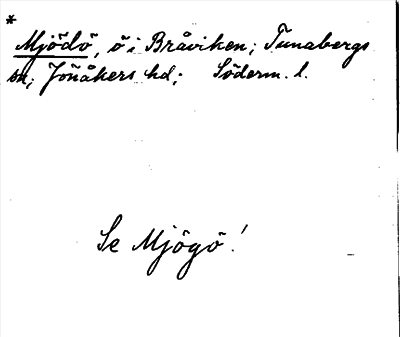 *
Mjödö, ö i Bråviken; Tunabergs
sn; Jönåkers hd; Söderm. l.
Se Mjögö!